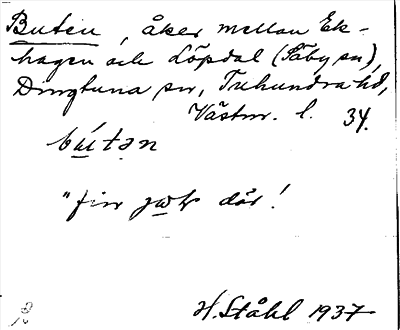 Buten, åker mellan Ek-
hagen och Löpdal (Säby sn),
Dingtuna sn, Tuhundra hd,
Västm. l. 34.
bútən
"fin jwk där!
H. Ståhl 1937